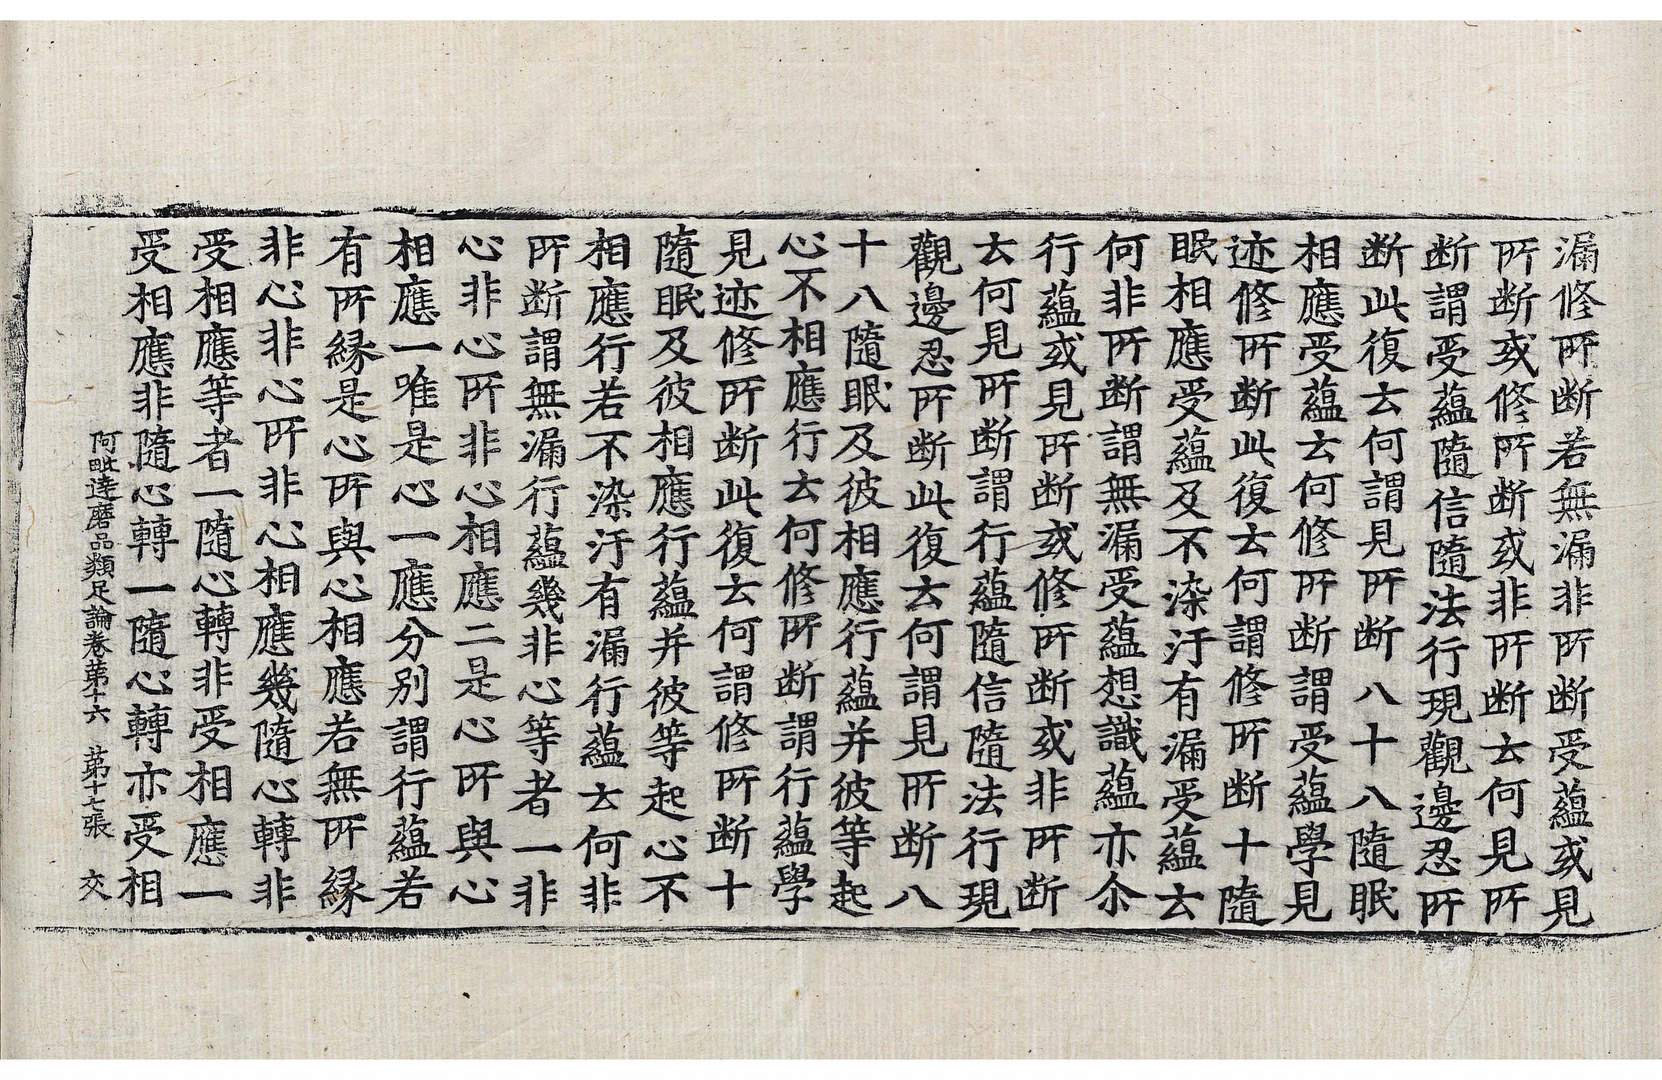 漏修所断若無漏非所断受蘊或見
所断或修所断或非所断云何見所
断謂受蘊隨信隨法行現觀邊忍所
断此復云何謂見所断八十八隨眠
相應受蘊云何修所断謂受蘊學見
迹修所断此復云何謂修所断十隨
眠相應受蘊及不染汙有漏受蘊云
何非所断謂無漏受蘊想識蘊亦尒
行蘊或見所断或修所断或非所断
云何見所断謂行蘊隨信隨法行現
觀邊忍所断此復云何謂見所断八
十八隨眠及彼相應行蘊并彼等起
心不相應行云何修所断謂行蘊學
見迹修所断此復云何謂修所断十
隨眠及彼相應行蘊并彼等起心不
相應行若不染汙有漏行蘊云何非
所断謂無漏行蘊幾非心等者一非
心非心所非心相應二是心所與心
相應一唯是心一應分別謂行蘊若
有所縁是心所與心相應若無所縁
非心非心所非心相應幾隨心轉非
受相應等者一隨心轉非受相應一
受相應非隨心轉一隨心轉亦受相
阿毗達磨品類足論卷苐十六 苐十七張 交